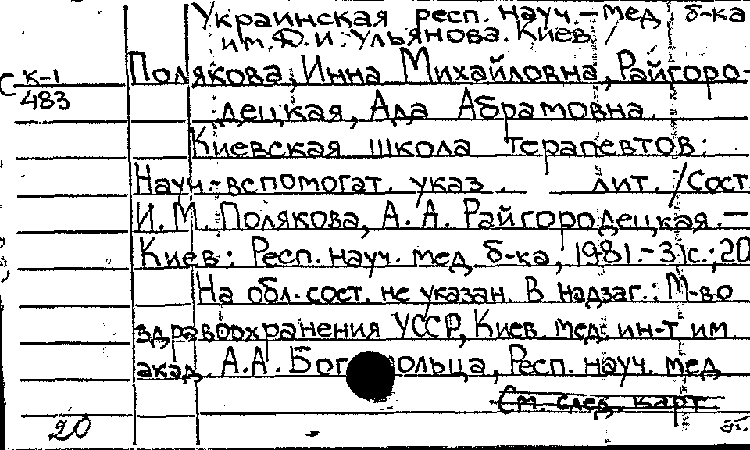 Украинская респ. науч.-мед. б-ка
им. Д.И. Ульянова. Киев
С К-1
483
Полякова, Инна Михайловна, Райгоро-
децкая, Ада Абрамовна.
Киевская школа терапевтов:
Науч.-вспомогат. указ. лит. / Сост
И. М. Полякова, А. А. Райгородецкая. —
Киев: Респ. науч. мед. б-ка, 1981. - 31 с.; 20
На обл. сост. не указан. В надзаг.: М-во
здравоохранения УССР, Киев. мед. ин-т им
акад. А.А. Бог ольца, Респ. науч. мед
См. след. карт.
20